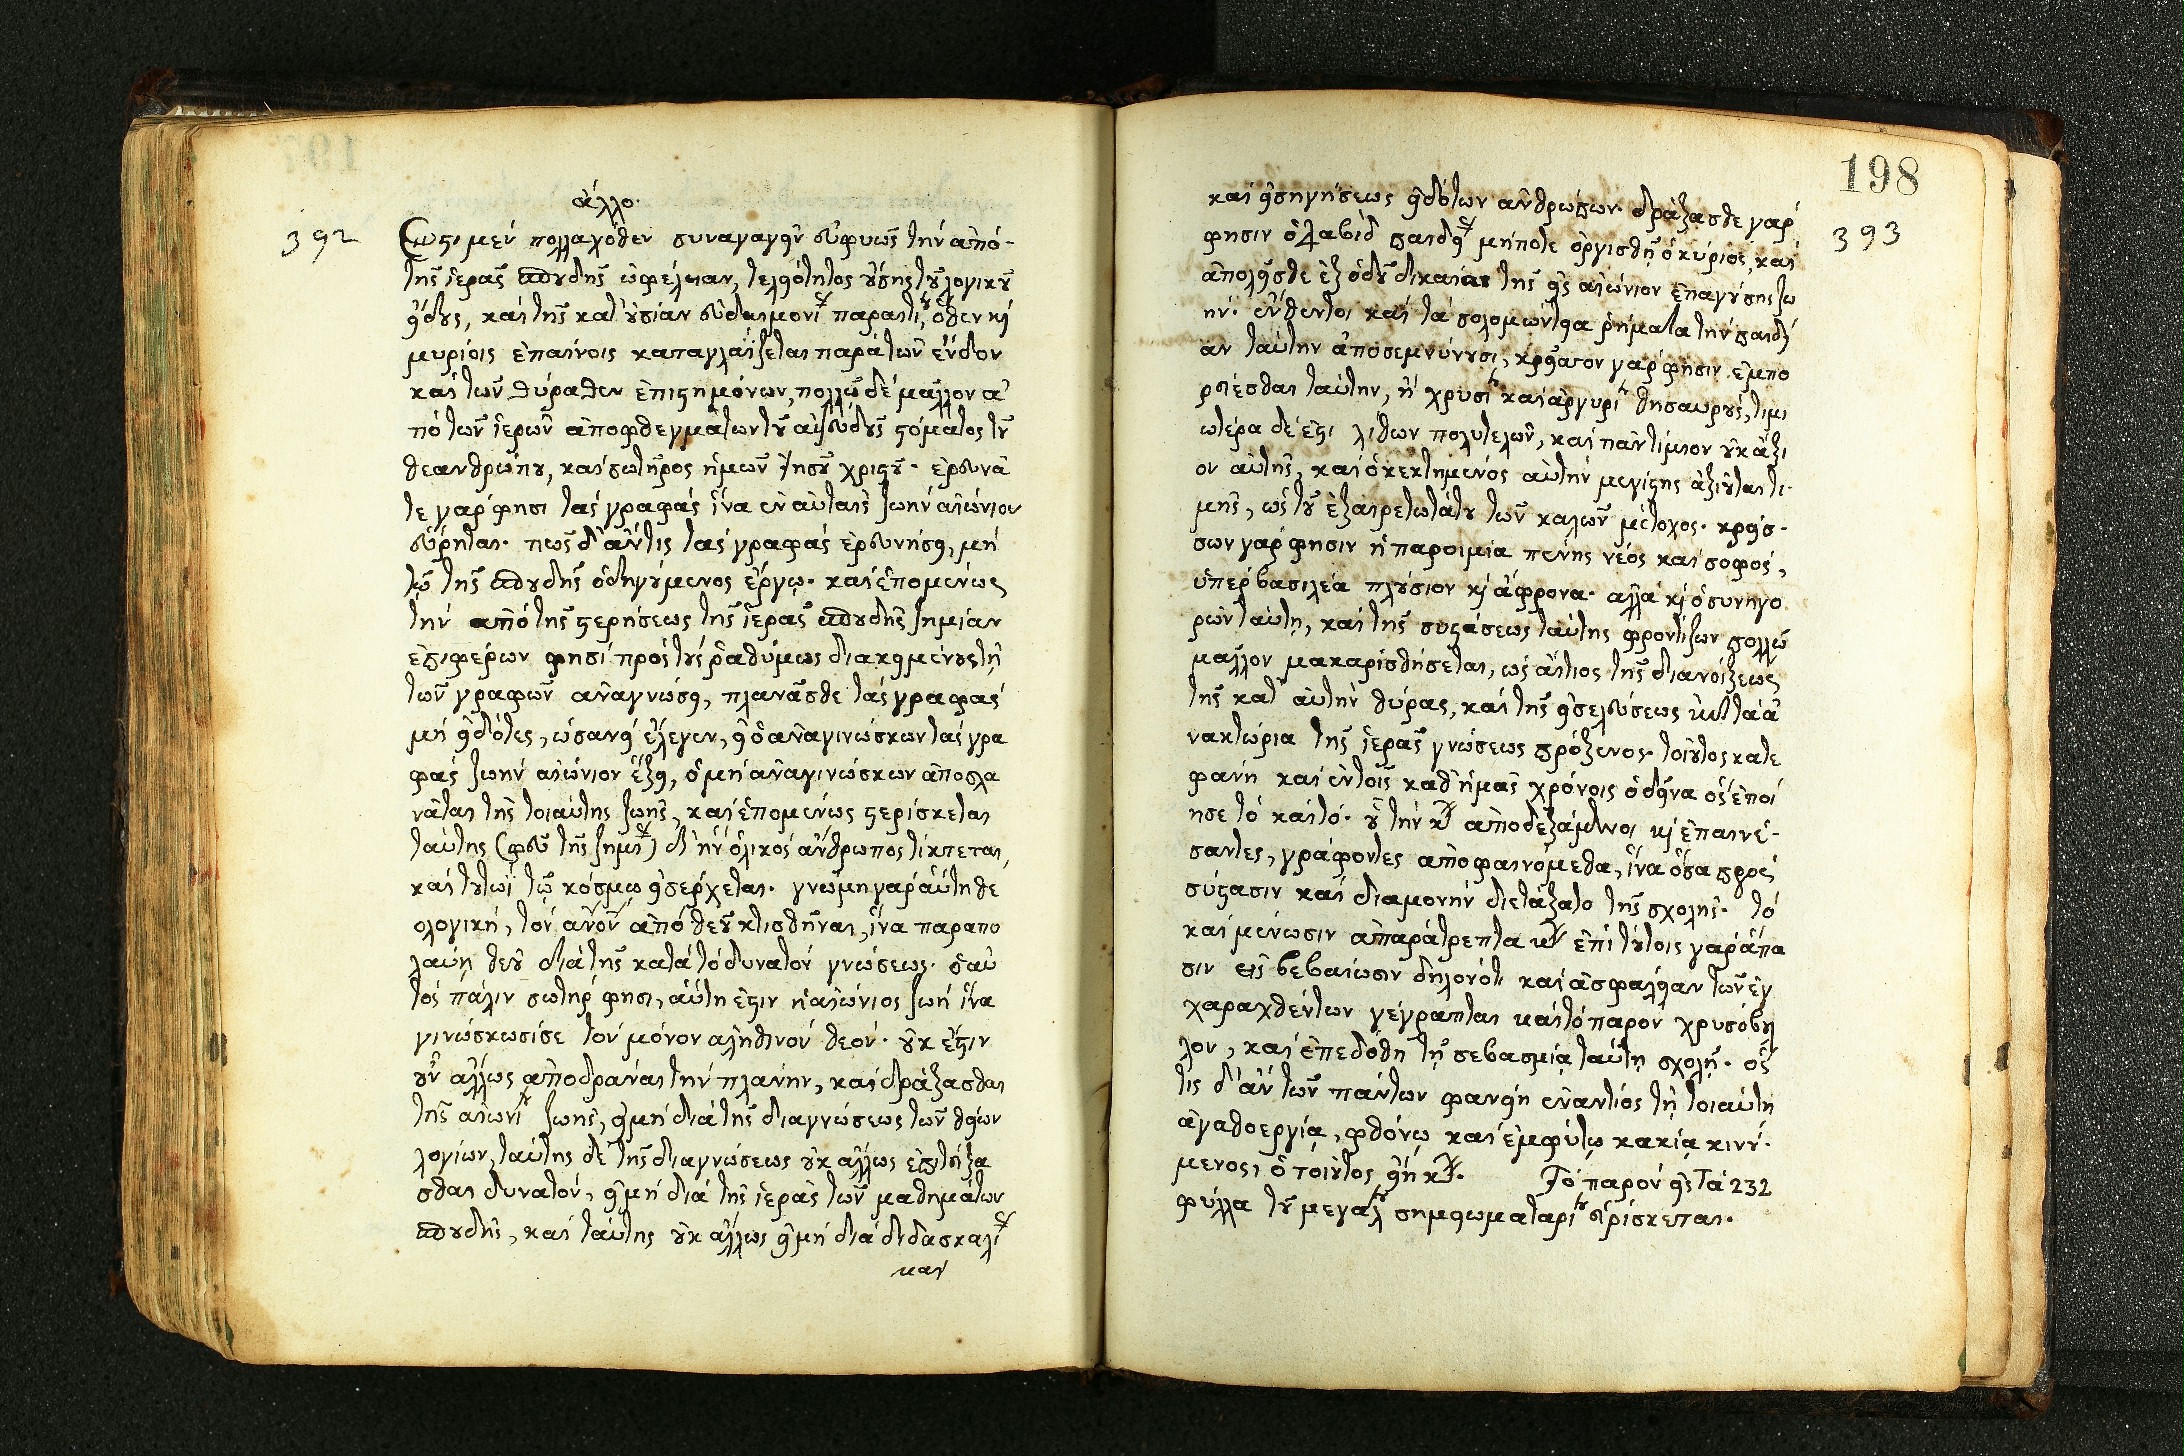 ἄλλο.
392
Ἔστι μὲν πολλαχόθεν συναγαγεῖν εὐφυῶς τὴν ἀπό
τῆς ἱερᾶς σπουδῆς ὠφέλειαν, τελειότητος οὔσης τοῦ λογικοῦ
εἴδους, καὶ τῆς κατ' οὐσίαν εὐδαιμονίας παραιτίου, ὅθεν καὶ
μυρίοις ἐπαίνοις καταγλαΐζεται παρὰ τῶν ἔνδον
καὶ τῶν θύραθεν ἐπιστημόνων, πολλῷ δὲ μᾶλλον ἀ
πὸ τῶν ἱερῶν ἀποφθεγμάτων τοῦ ἀψευδοῦς στόματος τοῦ
θεανθρώπου, καὶ σωτῆρος ἡμῶν Ἰησοῦ χριστοῦ. ἐρευνᾶ
τε γάρ φησι τὰς γραφάς ἵνα ἐν αὐταῖς ζωὴν αἰώνιον
εὕρητε. πῶς δ' ἄν τις τὰς γραφάς ἐρευνήσει, μή
τῷ τῆς σπουδῆς ὁδηγούμενος ἔργῳ. καὶ ἑπομένως
τὴν ἀπὸ τῆς στερήσεως τῆς ἱερᾶς σπουδῆς ζημίαν
ἐπιφέρων φησὶ πρὸς τοὺς ῥαθύμως διακειμένους τῇ
τῶν γραφῶν ἀναγνώσει, πλανᾶσθε τὰς γραφάς
μὴ εἰδότες, ὡσανεί ἔλεγεν, εἰ ὁ ἀναγινώσκων τὰς γρα
φάς ζωὴν αἰώνιον ἕξει, ὁ μὴ ἀναγινώσκων ἀποπλα
νᾶται τῆς τοιαύτης ζωῆς, καὶ ἑπομένως στερίσκεται
ταύτης (φεῦ τῆς ζημίας) δι' ἣν ὁλικὸς ἄνθρωπος τίκτεται,
καὶ τουτωῒ τῷ κόσμῳ εἰσέρχεται. γνώμη γὰρ αὕτη θε
ολογική, τὸν ἄνον ἀπὸ θεοῦ κτισθῆναι, ἵνα παραπο
λαύῃ θεοῦ διὰ τῆς κατὰ τὸ δυνατόν γνώσεως. ὁ αὐ
τὸς πάλιν σωτήρ φησι, αὕτη ἐστιν ἡ αἰώνιος ζωή ἵνα
γινώσκωσί σε τὸν μόνον ἀληθινόν θεόν. οὐκ ἔστιν
οὖν ἄλλως ἀποδρᾶναι τὴν πλάνην, καὶ δράξασθαι
τῆς αἰωνίου ζωῆς, εἰ μὴ διὰ τῆς διαγνώσεως τῶν θείων
λογίων, ταύτης δὲ τῆς διαγνώσεως οὐκ ἄλλως ἐπιτεύξα
σθαι δυνατόν, εἰ μὴ διὰ τῆς ἱερᾶς τῶν μαθημάτων
σπουδῆς, καὶ ταύτης οὐκ ἄλλως εἰ μὴ διὰ διδασκαλίας
καὶ
198
393
καὶ εἰσηγήσεως εἰδότων ἀνθρώπων. δράξασθε γάρ
φησιν ὁ Δαβίδ παιδείας μήποτε ὀργισθῇ ὁ κύριος, καὶ
ἀπολῆσθε ἐξ ὁδοῦ δικαίας τῆς εἰς αἰώνιον ἐπαγούσης ζω
ήν. ἐνθέντοι καὶ τὰ σολομώντεια ῥήματα τὴν παιδεί
αν ταύτην ἀποσεμνύνουσι, κρεῖττον γάρ φησιν ἐμπο
ρεύεσθαι ταύτην, ἢ χρυσίου καὶ ἀργυρίου θησαυρούς, τιμι
ωτέρα δέ ἐστι λίθων πολυτελῶν, καὶ πᾶν τίμιον οὐκ ἄξι
ον αὐτῆς, καὶ ὁ κεκτημένος αὐτὴν μεγίστης ἀξιοῦται τι
μῆς, ὡς τοῦ ἐξαιρετωτάτου τῶν καλῶν μέτοχος. κρείσ
σων γάρ φησιν ἡ παροιμία πένης νέος καὶ σοφός,
ὑπὲρ βασιλέα πλούσιον καὶ ἄφρονα. ἀλλὰ καὶ ὁ συνηγο
ρῶν ταύτῃ, καὶ τῆς συστάσεως ταύτης φροντίζων πολλῷ
μᾶλλον μακαρισθήσεται, ὡς αἴτιος τῆς διανοίξεως
τῆς κατ' αὐτὴν θύρας, καὶ τῆς εἰσελεύσεως τὰ ἀ
νακτώρια τῆς ἱερᾶς γνώσεως πρόξενος. τοιοῦτος κατε
φάνη καὶ ἐν τοῖς καθ' ἡμᾶς χρόνοις ὁ δεῖνα ὃς ἐποί
ησε τὸ καὶ τό. οὗ τὴν ἀποδεξάμενοι καὶ ἐπαινέ
σαντες, γράφοντες ἀποφαινόμεθα, ἵνα ὅσα πρὸς
σύστασιν καὶ διαμονὴν διετάξατο τῆς σχολῆς τό
καὶ μένωσιν ἀπαράτρεπτα ἐπὶ τούτοις γὰρ ἅπα
σιν εἰς βεβαίωσιν δηλονότι καὶ ἀσφάλειαν τῶν ἐγ
χαραχθέντων γέγραπται καὶ τὸ παρὸν χρυσόβου
λον, καὶ ἐπεδόθη τῇ σεβασμίᾳ ταύτῃ σχολῇ. ὅς
τις δ' ἂν τῶν πάντων φανείη ἐναντίος τῇ τοιαύτῃ
ἀγαθοεργίᾳ, φθόνῳ καὶ ἐμφύτῳ κακίᾳ κινού
μενος, ὁ τοιοῦτος εἴη Τὸ παρὸν εἰς τὰ 232
φύλλα τοῦ μεγάλου σημειωματαρίου εὑρίσκεται.